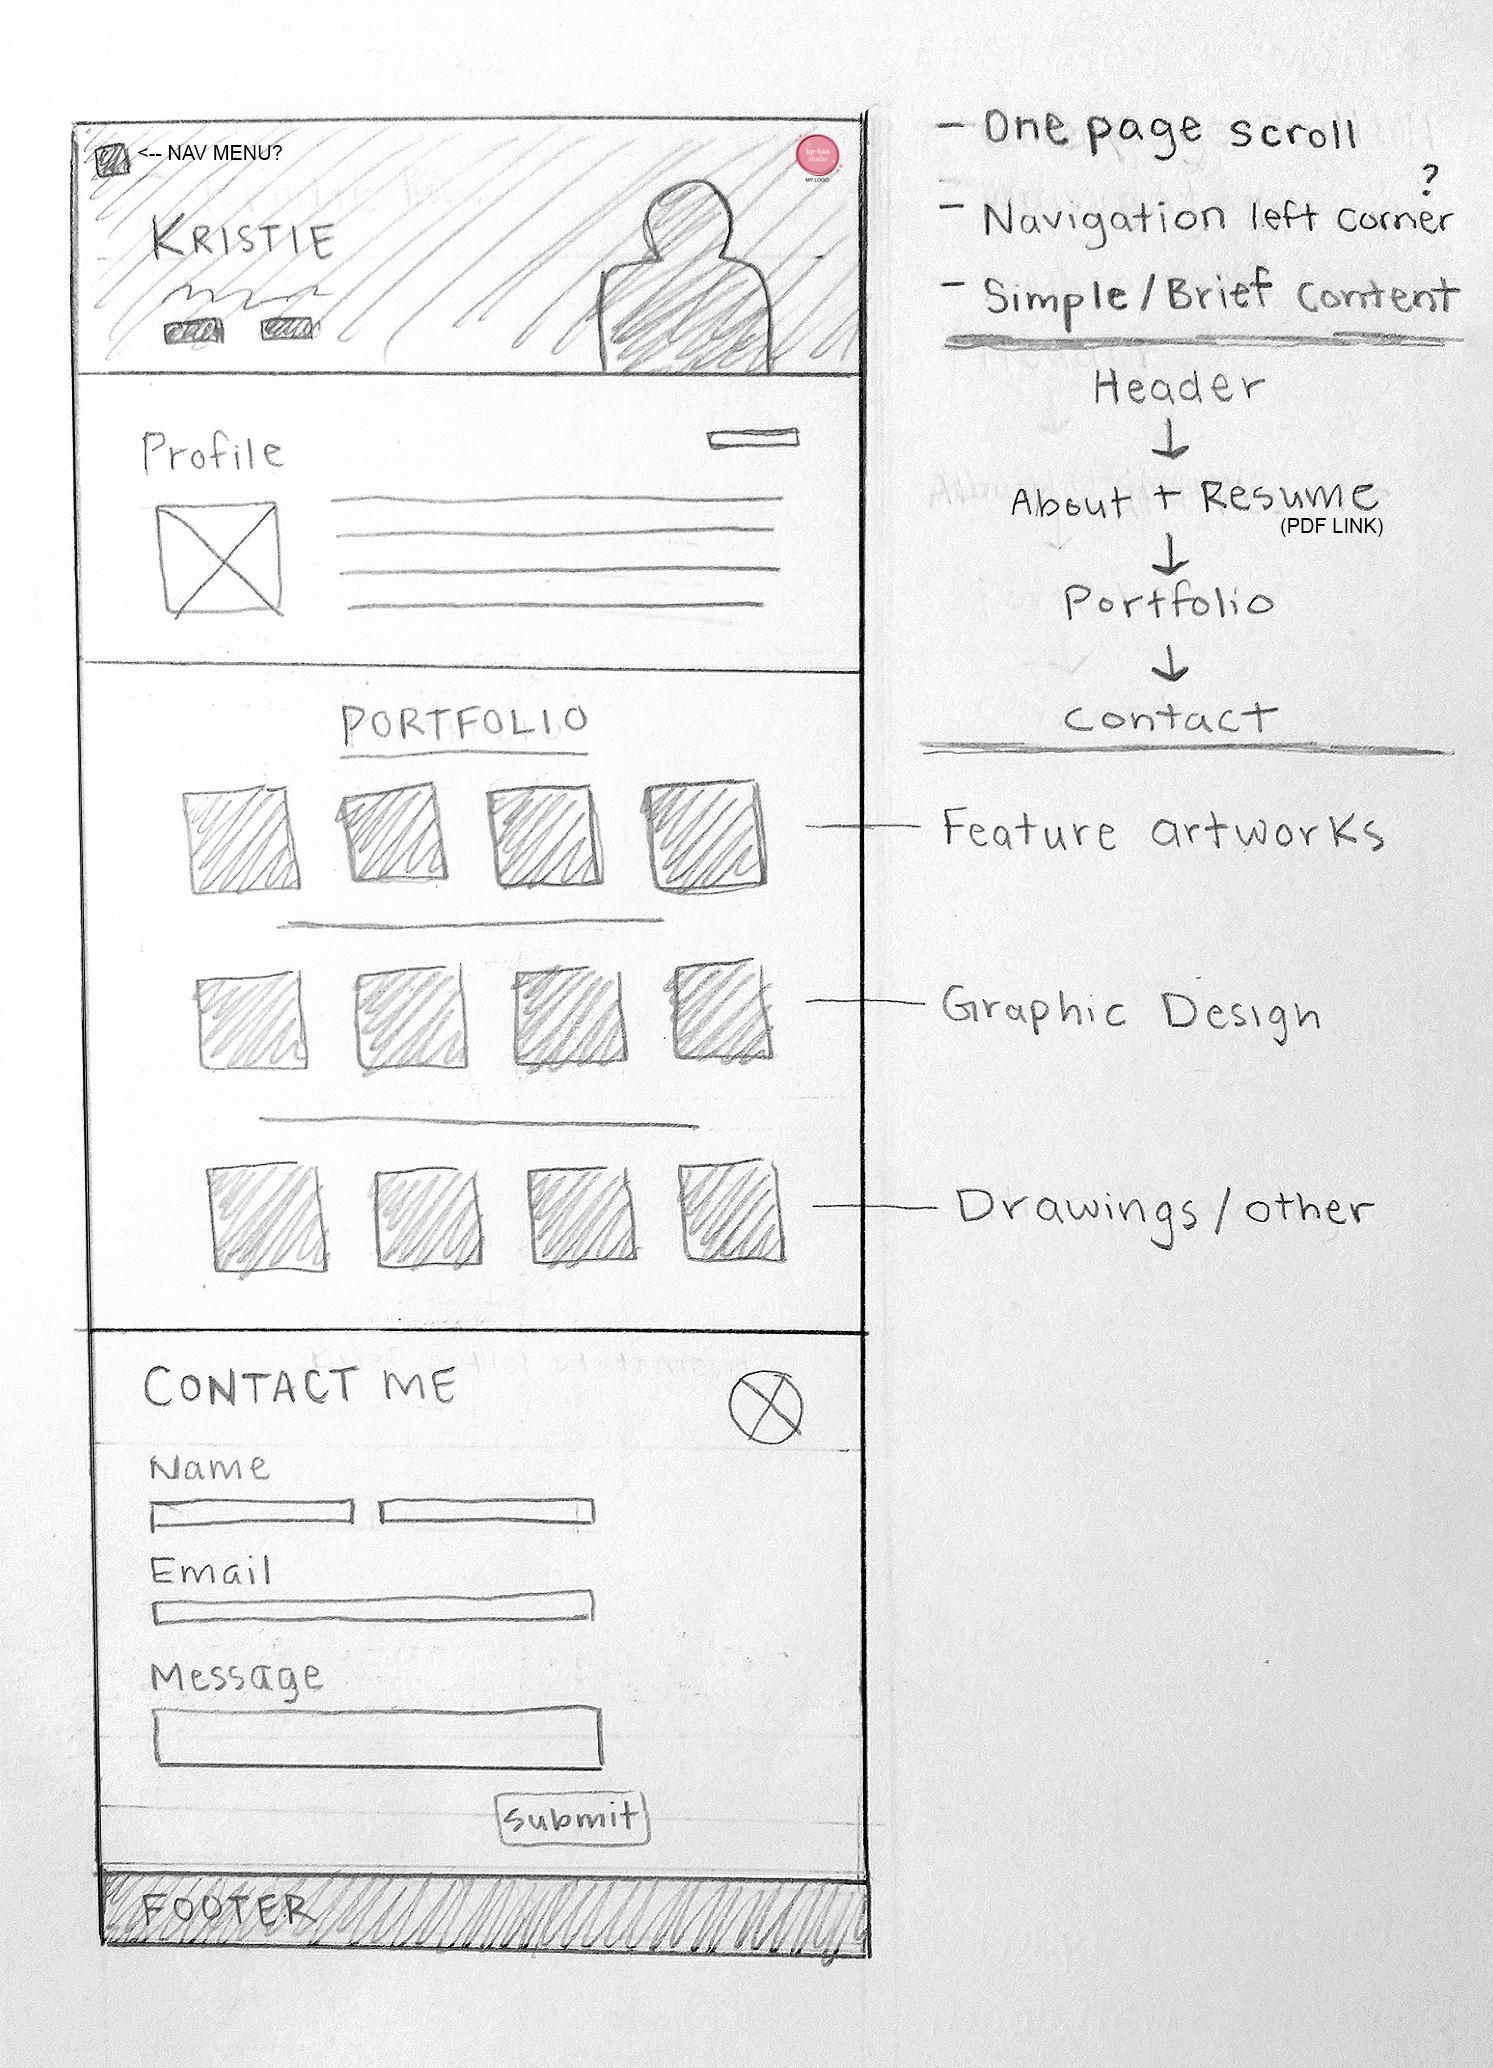 <-- NAV MENU?
kp-han
studio
MY LOGO
KRISTIE
Profile
PORTFOLIO
CONTACT ME
Name
Email
Message
Submit
FOOTER
- One page scroll
?
- Navigation left corner
- Simple/Brief Content
Header
↓
About + Resume
(PDF LINK)
↓
Portfolio
↓
Contact
Feature artworks
Graphic Design
Drawings/other